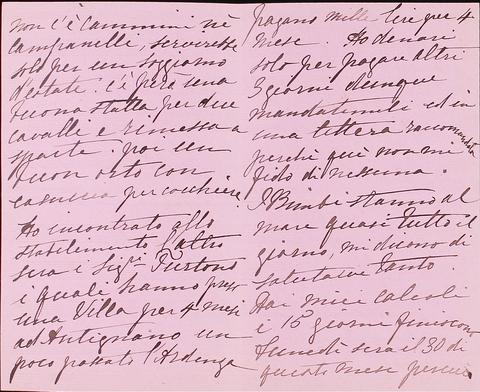 non c'è cammini nè
campanelli, servirebbe
solo per un soggiorno
d'estate. c'è però una
buona stalla per due
cavalli e rimessa a
parte poi un
buon orto con
casuccia per cocchiere
Ho incontrato allo
stabilimento l'altra
sera i Sigri Turtons
i quale hanno preso
una Villa per 4 mesi
ad Antignano un
poco passato l'Ardenza
pagano mille lire per 4
mese. Ho denari
solo per pagare altri
3 giorni dunque
mandatemeli ed in
una lettera raccomandata
perchè qui non mi
fido di nessuna.
I Bimbi stanno al
mare quasi tutto il
giorno, mi dicono di
salutarvi tanto.
Dai miei calcoli
i 15 giorni finiscono
Lunedì sera il 30 di
questo mese perciò